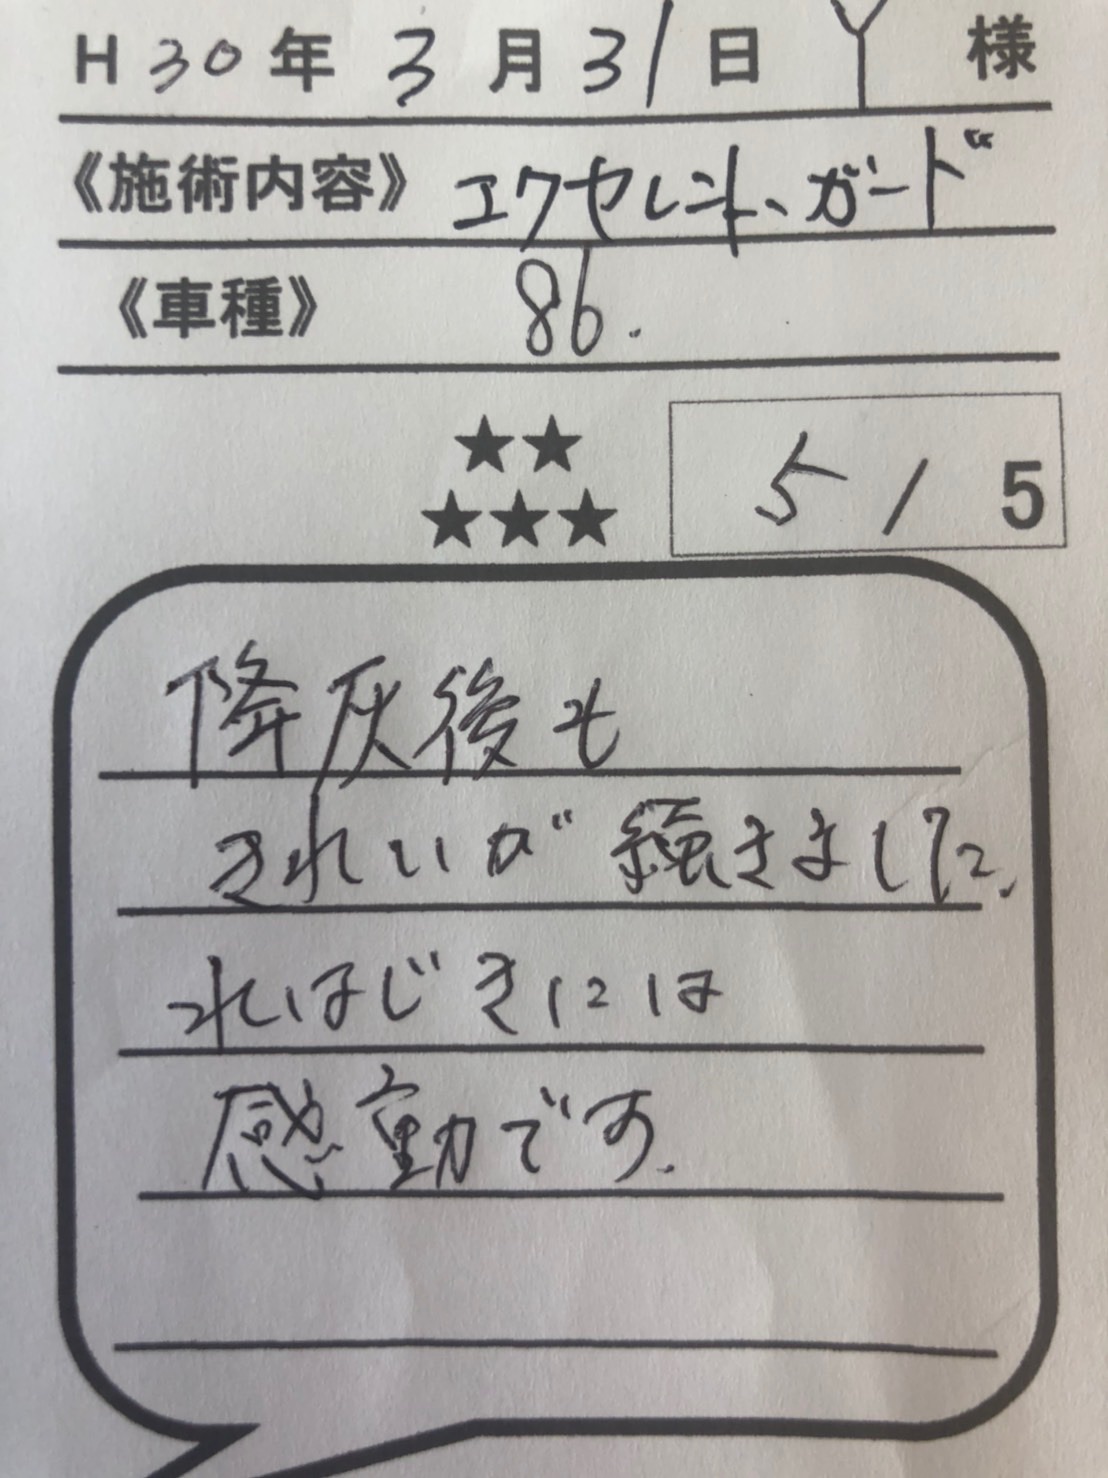 H30年 3月31日 Y 様
《施術内容》 エクセレント、ガード
《車種》 86.
★★
★★★
5 / 5
降灰後も
きれいが続きました、
水はじきには
感動です.